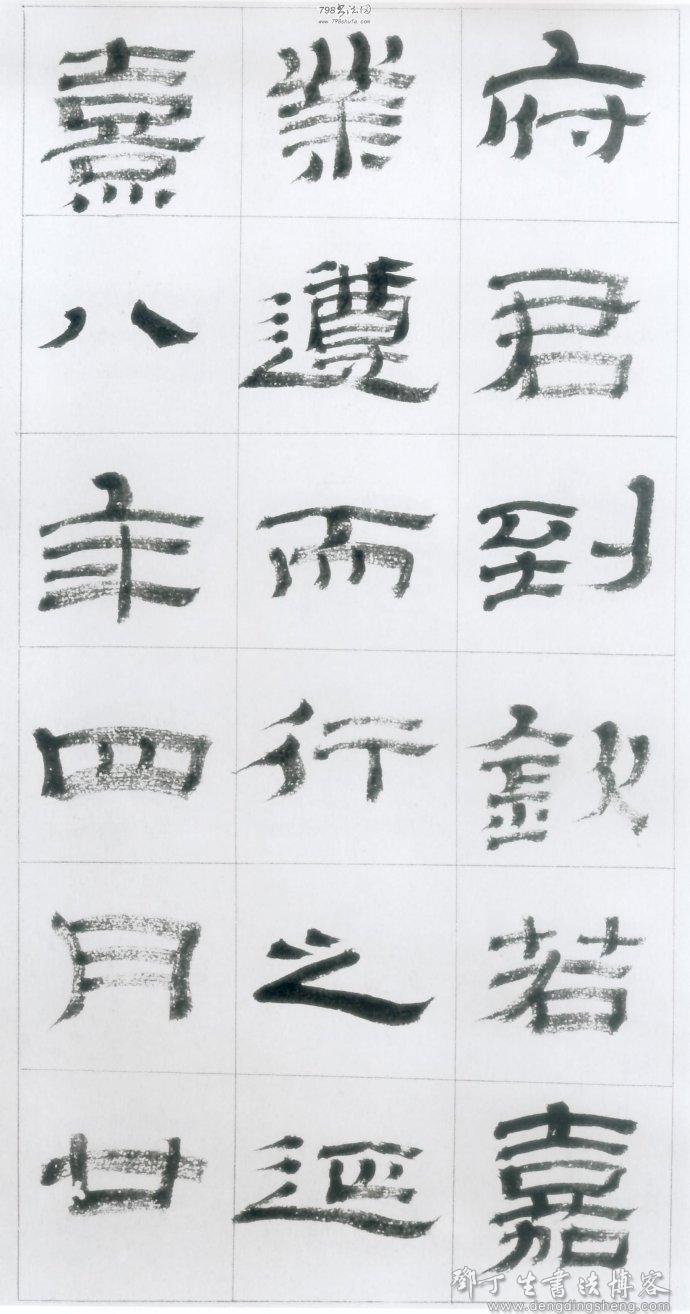 798书法网
www.798shufa.com
府君到欽若嘉
業遵而行之延
熹八年四月廿
鄧丁生書法博客
www.dengdingsheng.com